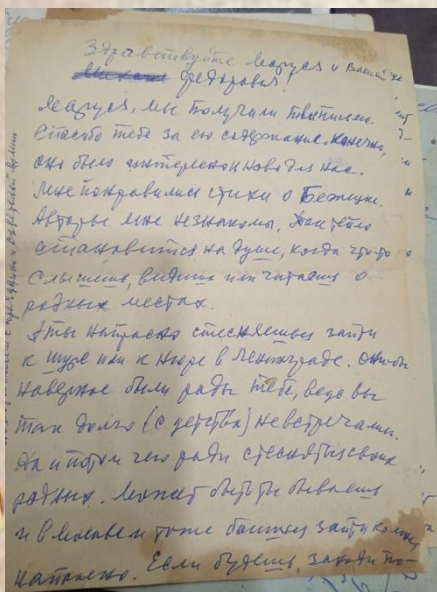 Здравствуйте Маруся и
Федорович!
Маруся, мы получили твоё письмо.
Спасибо тебе за его содержание. Конечно,
оно было интересно и ново для нас.
Мне понравились стихи о Бежецке.
Авторы мне незнакомы. Как тепло
становится на душе, когда что-то
слышишь, видишь или читаешь о
родных местах.
А ты напрасно стесняешься зайти
к Шуре или к Нюре в Ленинграде. Они бы
наверное были рады тебе, ведь вы
так долго (с детства) не встречались.
Да и потом чего ради стесняться своих
родных. Может быть ты бываешь
и в Москве и тоже боишься зайти ко мне,
напрасно. Если будешь, заходи по-